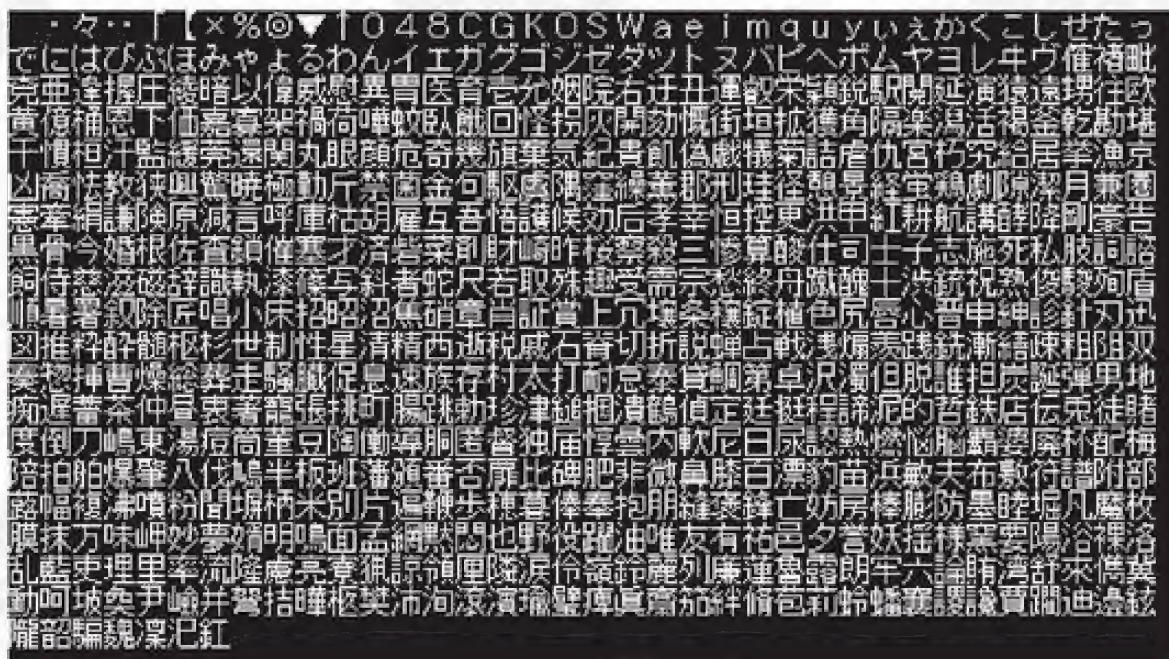 ・々‥「【×%◎▼†048CGKOSWaeimquyぃぇかくこしせたっ
でにはびぶほみゃょるわんィエガグゴジゼダツトヌバピヘボムヤヨレヰヴ
亜握圧綾暗以偉威慰異胃医育壱允姻院右丑運栄鋭駅閲延演猿遠欧
黄億桶恩下価嘉夏架禍荷嘩蚊臥餓回怪拐灰開劾慨街垣拡獲角隔楽潟活褐釜乾勘堪
干慣柑汗監緩莞還関丸眼顔危奇幾旗棄気紀貴飢偽戯犠菊詰虐仇宮朽究給居挙漁京
凶喬怯教狭興驚暁極勤斤禁菌金句駆遇隅窪繰薫郡刑珪径憩景経蛍鶏劇隙潔月兼圏
憲牽絹謙険原減言呼庫枯胡雇互吾悟護候効后孝幸恒控更洪甲紅耕航講酵降剛豪
黒骨今婚根佐査鎖催塞才済砦菜剤財崎昨桜察殺三惨算酸仕司士子志施死私肢詞
飼侍慈滋磁辞識執漆篠写斜者蛇尺若取殊趣受需宗終舟蹴醜十渋銃祝熟俊駿殉盾
順暑署叙除匠唱小床招昭沼焦硝章肖証賞上冗壌条穣錠植色尻唇心晋申紳診針刃迅
図推粋酔髄枢杉世制性星清精西逝税戚石脊切折説蝉占戦浅煽羨践銑漸結疎粗阻双
奏惣挿曹燥総葬走騒贈促息速族存村太打耐怠泰貸鯛第卓沢濁但脱誰担炭誕弾男地
痴遅蓄茶仲昼衷著龍張挑町腸跳勅珍津鎚掴潰鶴偵定廷挺程諦尼的哲鉄店伝兎徒賭
度倒刀嶋東湯痘筒董豆陶働導胴匿督独届惇曇内軟尼日尿認熱燃悩脳覇婆廃杯配梅
陪拍舶爆肇八伐鳩半板班藩頒番否扉比碑肥非微鼻膝百漂豹苗浜敏夫布敷符譜附部
蕗幅複沸噴粉聞塀柄米別片遍鞭歩穂暮俸奉抱朋縫褒鋒亡妨房棒膨防墨睦堀凡魔枚
膜抹万味岬妙夢婿明鳴面孟網黙悶也野役躍油唯友有祐邑夕誉妖揺様窯要陽浴裸洛
乱藍吏理里率流隆慮亮寮猟諒領厘隣涙伶嶺鈴麗列廉連魯露朗牢六論賄湾
動呵坡奕尹井拮曄枢樊滾濱璧眞絆脩苞莉蛉蟠襄讒賈迪邉
朧韶騙魏凜汜紅